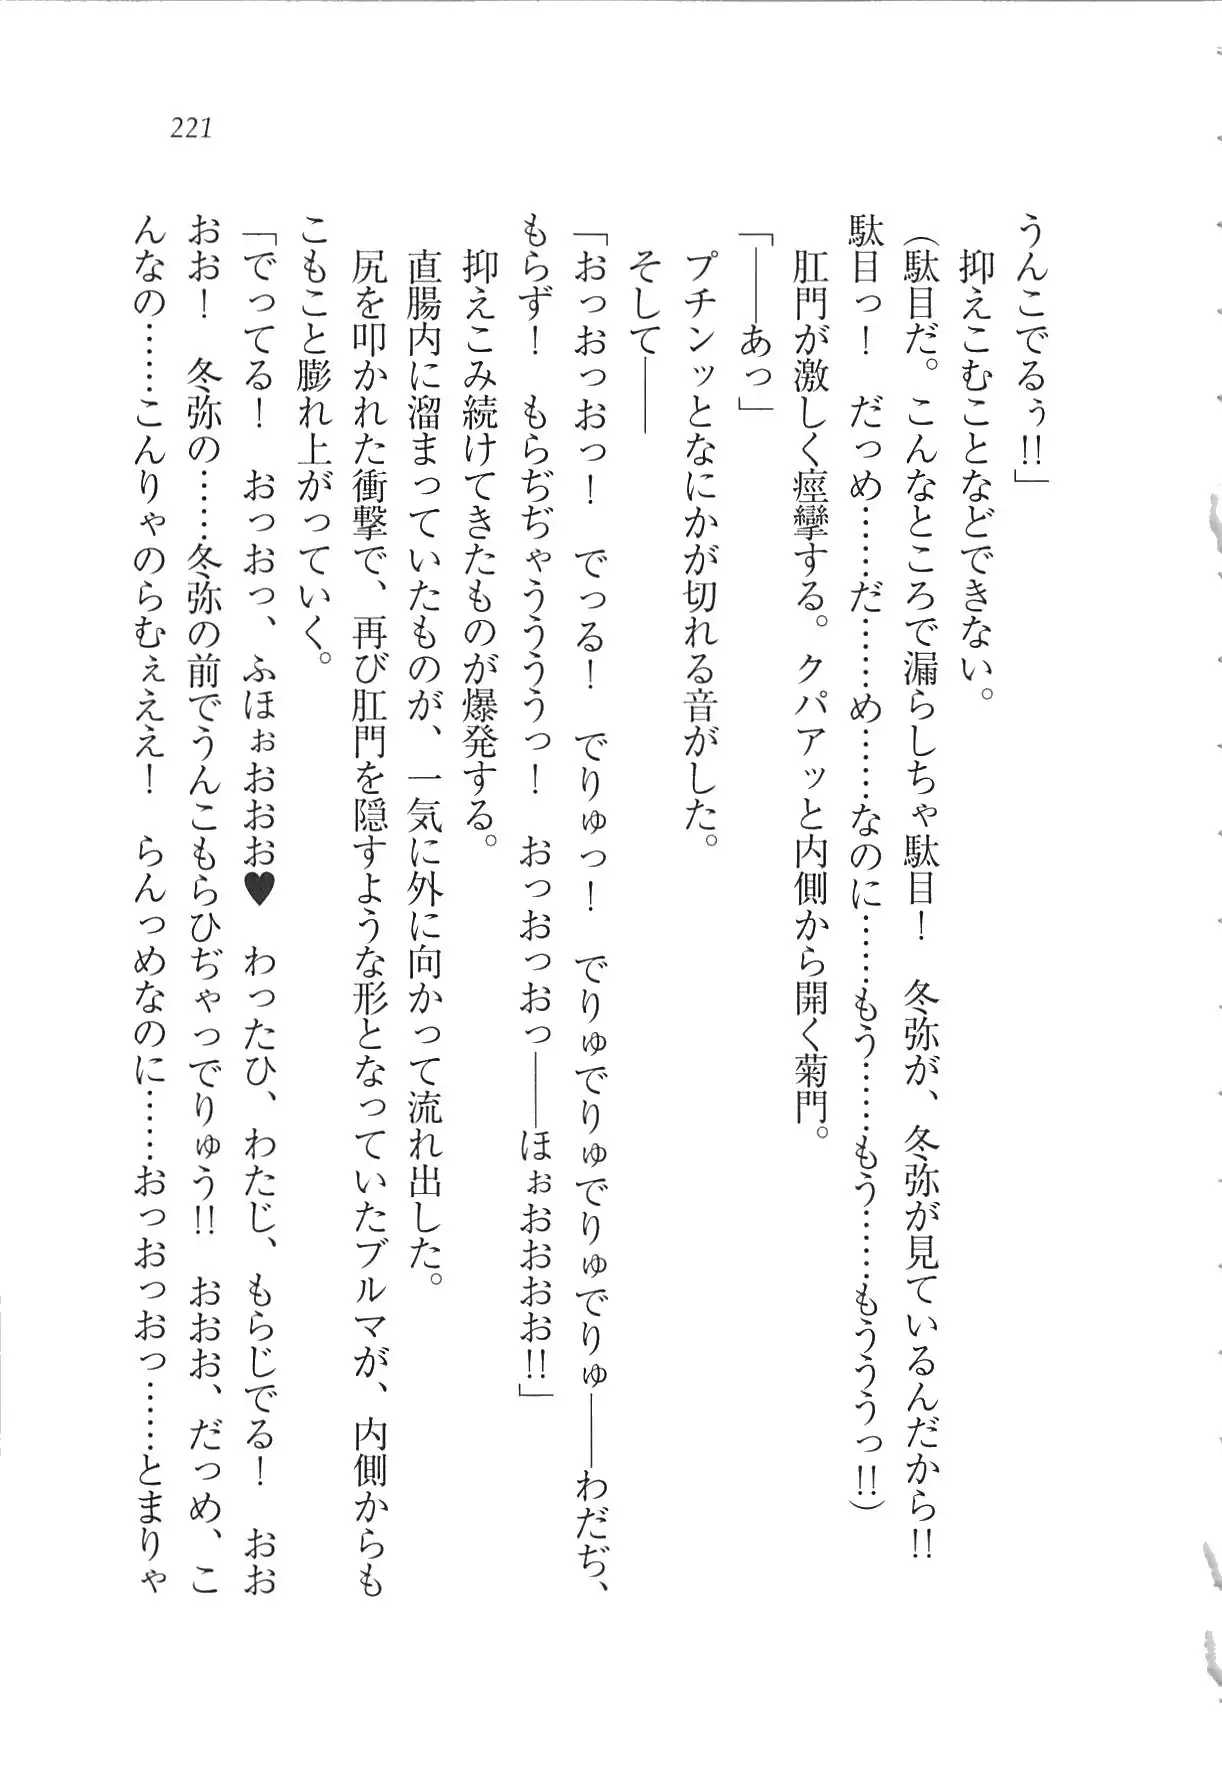 221
うんこでるぅ!!」
　抑えこむことなどできない。
（駄目だ。こんなところで漏らしちゃ駄目！　冬弥が、冬弥が見ているんだから!!
駄目っ！　だっめ……だ……め……なのに……もう……もう……もうううっ!!）
　肛門が激しく痙攣する。クパアッと内側から開く菊門。
「――あっ」
　プチンッとなにかが切れる音がした。
　そして――
「おっおっおっ！　でっる！　でりゅっ！　でりゅでりゅでりゅでりゅ――わだぢ、
もらず！　もらぢぢゃうううっ！　おっおっおっ――ほぉおおおお!!」
　抑えこみ続けてきたものが爆発する。
　直腸内に溜まっていたものが、一気に外に向かって流れ出した。
　尻を叩かれた衝撃で、再び肛門を隠すような形となっていたブルマが、内側からも
こもこと膨れ上がっていく。
「でってる！　おっおっ、ふほぉおおお♥　わったひ、わたじ、もらじでる！　おお
おお！　冬弥の……冬弥の前でうんこもらひぢゃっでりゅう!!　おおお、だっめ、こ
んなの……こんりゃのらむぇええ！　らんっめなのに……おっおっおっ……とまりゃ